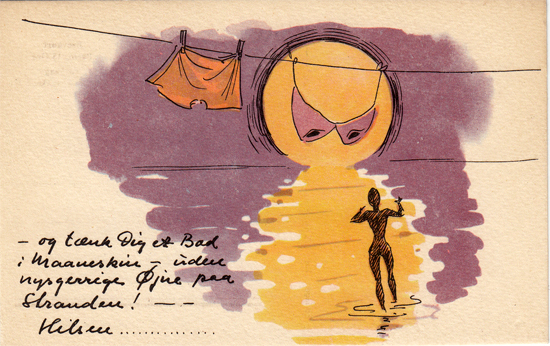 – og tænk Dig et Bad
i Maaneskin – uden
nysgerrige Øjne paa
Stranden! – –
Hilsen ..............